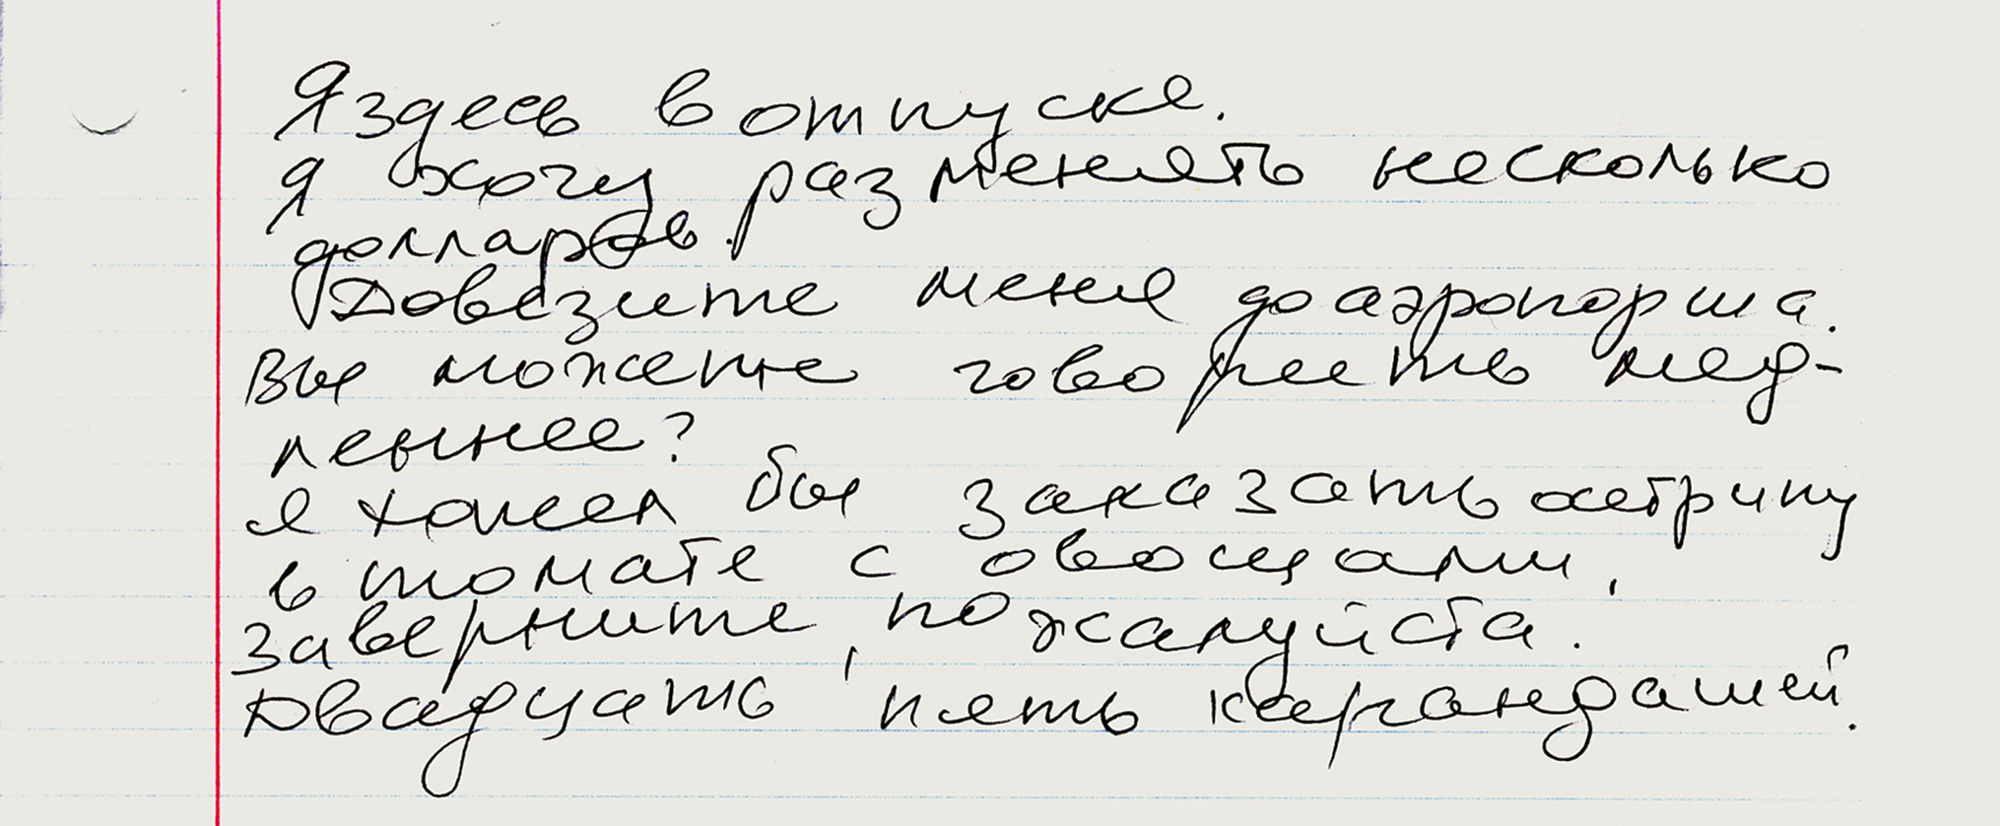 Я здесь в отпуске.
Я хочу разменять несколько
долларов.
Довезите меня до аэропорта.
Вы можете говорить мед-
леннее?
Я хотел бы заказать осетрину
в томате с овощами.
Заверните, пожалуйста.
Двадцать пять карандашей.